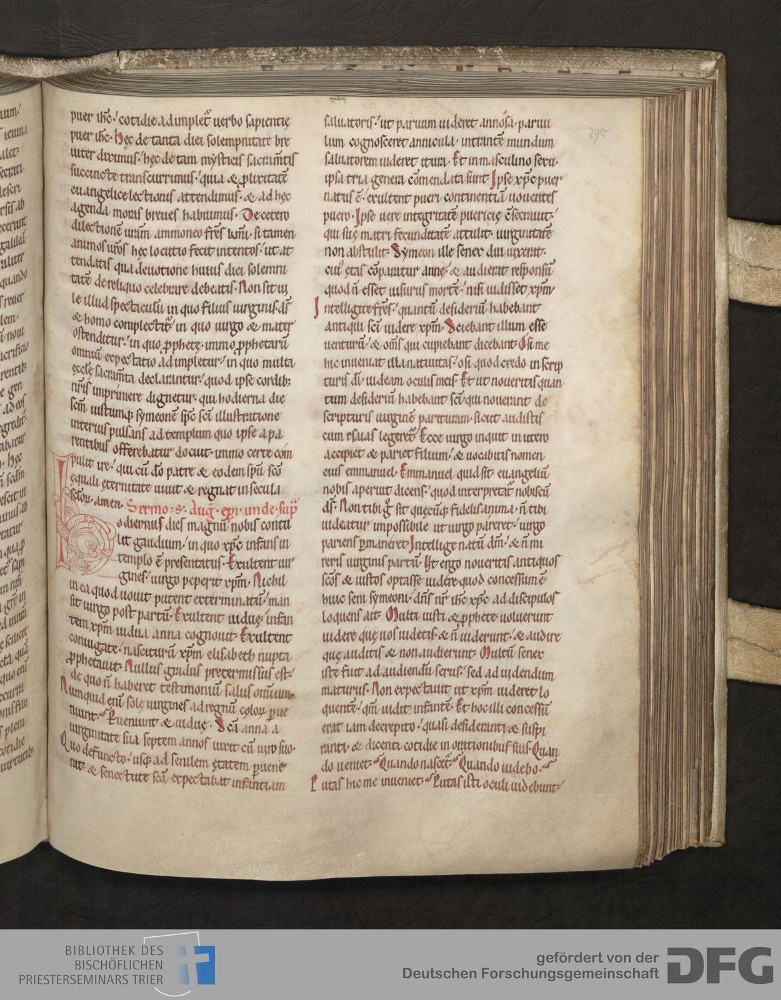 puer ihc̄. cotidie adimplet᷑ uerbo sapientię
puer ihc̄. Hęc de tanta diei solempnitate bre
uiter diximus. hęc de tam mysticis sacram̄tis
succincte transcurrimus. quia & plixitatē
euangelice lectionis attendimus. & ad hęc
agenda moras breues habuimus. De cetero
dilectionē urām ammoneo frēs kmī. si tamen
animos urōs hęc locutio fecit intentos. ut at
tendatis qua deuotione huius diei solemni
tatē de reliquo celebrare debeatis. Non sit ui
le illud spectaculū in quo filius uirginis ds̄
& homo complectit᷑. in quo uirgo & mater
ostenditur. in quo ꝓphetę. immo ꝓphetarū
omniū expectatio adimpletur. in quo multa
ęcclę sacram̄ta declarantur. quod ipse cordib;
nr̄is imprimere dignetur. qui hodierna die
scm̄ iustumq; symeonē sp̄c sc̄i illustratione
interius pulsans ad templum quo ipse a pa
rentibus offerebatur docuit. immo certe com
pulit ire. qui cū dō patre & eodem spū scō
ęquali ęternitate uiuit & regnat in secula
sc̄lor. amen. Sermo. s. Aug. epi. unde. sup̄
hodiernus dies magnū nobis contu
lit gaudium. in quo xp̄c infans in
templo ē presentatus. Exultent uir
gines. uirgo peperit xp̄m. Nichil
in ea quod uouit putent exterminatū. man
sit uirgo post partū. Exultent uiduę. infan
tem xp̄m uidua anna cognouit. Exultent
coniugatę. nasciturū xp̄m elisabeth nupta
ꝓphetauit. Nullus gradus pretermissus est.
de quo n̄ haberet testimoniū salus omium.
Nunquid eni sole uirgines ad regnū cęloꝝ ꝑue
niunt. Perueniunt & uiduę. Scā anna a
uirginitate sua septem annos uixit cū uiro suo.
Quo defuncto. usq; ad senilem ętatem ꝑuene
rat. & senectute scā expectabat infantiam
saluatoris. ut paruum uideret annosa. paruu
lum cognosceret annicula. intrantē mundum
saluatorem uideret itura. Et in masculino sexu.
ipsa tria genera cōmendata sunt. Ipse xp̄c puer
natus ē. exultent pueri continentiā uouentes
puero. Ipse uere integritatē puericię c̄secrauit.
qui suę matri fecunditatē attulit. uirginitatē
non abstulit. Symeon ille senex diu uixerat.
cui ętas cōparatur annę. & audierat respōnsū
quod n̄ esset uisurus mortē. nisi uidisset xp̄m.
Intelligite frēs. quantū desideriū habebant
antiqui scī uidere xp̄m. Sciebant illum esse
uenturū. & oms̄ qui cupiebant dicebant. O si me
hic inueniat illa natiuitas. o si quod credo in scrip
turis dī. uideam oculis meis. Et ut noueritis quan
tum desideriū habebant scī. qui nouerant de
scripturis uirginē parituram. sicut audistis
cum esaias legeret᷑. Ecce uirgo inquit in utero
accipiet & pariet filium. & uocabitis nomen
eius emmanuel. Emmanuel quid sit. euangeliū
nobis aperuit dicens. quod interpretat᷑ nobiscū
ds̄. Non tibi g̊ sit quecūq; fidelis anima. n̄ tibi
uideatur impossibile ut uirgo pareret. uirgo
pariens ꝑmaneret. Intellige natū dm̄. & n̄ mi
reris uirginis partū. Ut ergo noueritis antiquos
scōs & iustos optasse uidere quod concessum ē
huic seni symeoni. dn̄s nr̄ ihc̄ xp̄c ad discipulos
loquens ait. Multi iusti & ꝓphetę uoluerunt
uidere quę uos uidetis. & n̄ uiderunt. & audire
que auditis & non audierunt. Multū senex
iste fuit ad audiendū serus. sed ad uidendum
maturus. Non expectauit ut xp̄m uideret lo
quentē. qm̄ uidit infantē. Et hoc illi concessū
erat iam decrepito. quasi desideranti & suspi
ranti. & dicenti cotidie in orationibus suis. Quan
do ueniet. Quando nascet᷑. Quando uidebo.
Putas hic me inueniet. Putas isti oculi uidebunt.
295
BIBLIOTHEK DES
BISCHÖFLICHEN
PRIESTERSEMINARS TRIER
gefördert von der
Deutschen Forschungsgemeinschaft
DFG